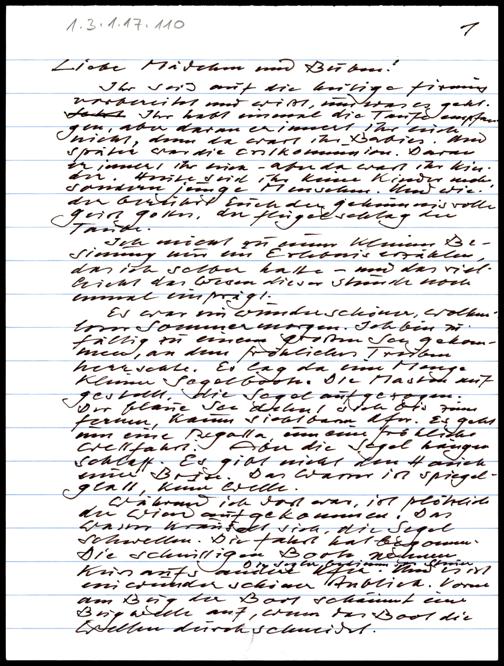 1.3.1.17.110
1
Liebe Mädchen und Buben!
Ihr seid auf die heutige Firmung
vorbereitet und wisst, um was es geht.
Ihr habt einmal die Taufe empfan-
gen, aber daran erinnert ihr euch
nicht, denn da wart ihr Babies. Und
später war die Erstkommunion. Daran
erinnert ihr euch – aber da wart ihr Kin-
der. Heute seid ihr keine Kinder mehr
sondern junge Menschen. Und wie-
der berührt Euch der geheimnisvolle
Geist Gottes, der Flügelschlag der
Taube.
Ich möcht zu einer kleinen Be-
sinnung nur ein Erlebnis erzählen,
das ich selber hatte – und das viel-
leicht das Wesen dieser Stunde noch
einmal einprägt.
Es war ein wunderschöner, wolken-
loser Sommermorgen. Ich bin zu-
fällig zu einem grossen See gekom-
men, an dem fröhliches Treiben
herrschte. Es lag da eine Menge
kleiner Segelboote. Die Masten auf-
gestellt, die Segel aufgezogen.
Der blaue See dehnt sich bis zum
fernen, kaum sichtbaren Ufer. Es geht
um eine Regatta, um eine fröhliche
Wettfahrt. Aber die Segel hängen
schlaff. Es gibt nicht den Hauch
einer Brise. Das Wasser ist spiegel-
glatt, keine Welle.
Während ich dort war, ist plötzlich
der Wind aufgekommen. Das
Wasser kräuselt sich, die Segel
schwellen. Die Fahrt hat begonnen.
Die schnittigen Boote nehmen
Kurs aufs andere Ufer. Und es ist
ein wunderschöner Anblick. Vorne
am Bug der Boote schäumt eine
Bugwelle auf, wenn das Boot die
Wellen durchschneidet.